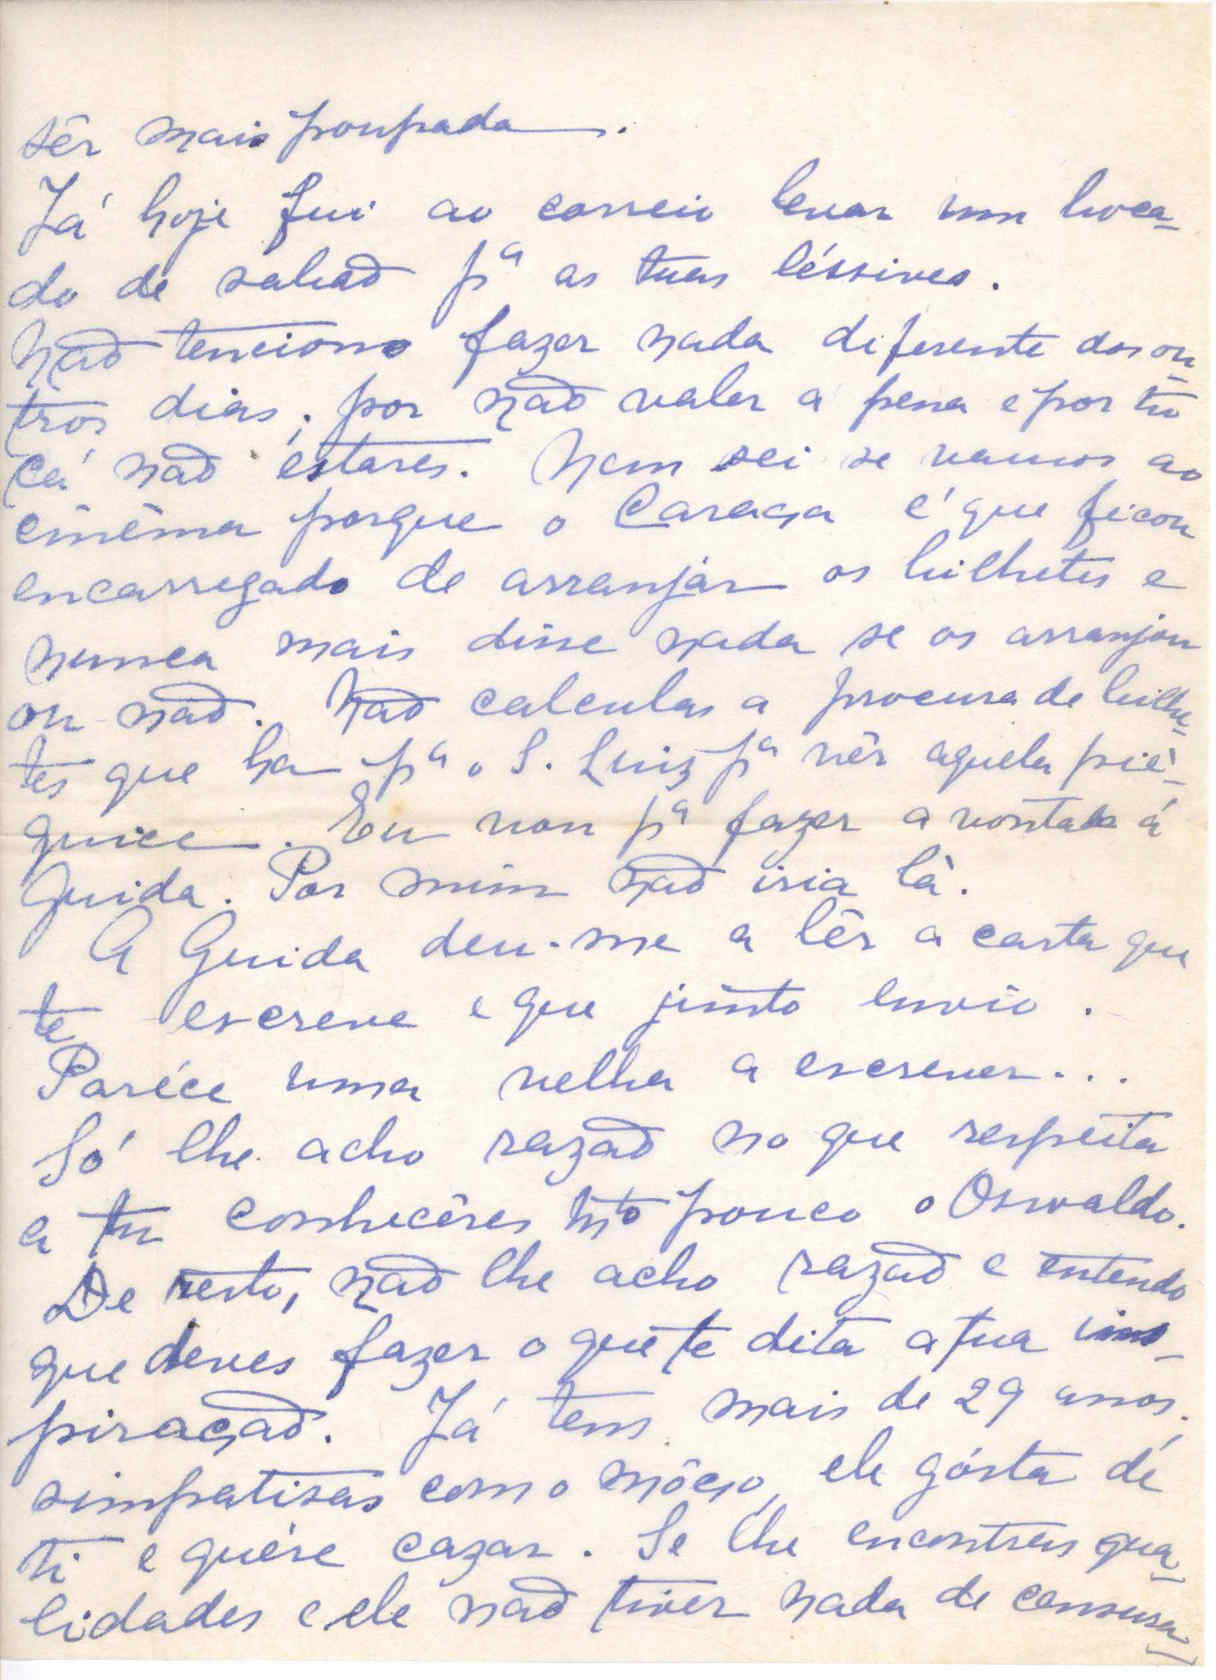 sêr mais poupada.
Já hoje fui ao correio levar um boca-
do de sabaõ pª as tuas léssivas.
Naõ tenciono fazer nada diferente dos ou-
tros dias, por naõ valer a pena e por tu
cá naõ éstares. Nem sei se vamos ao
cinêma porque o Caraça é que ficou
encarregado de arranjár os bilhetes e
nunca mais disse nada se os arranjou
ou naõ. Naõ calculas a procura de bilhe-
tes que ha pª o S. Luiz pª vêr aquela piè-
guice. Eu vou pª fazer a vontade á
Guida. Por mim naõ iria lá.
A Guida deu-me a lêr a carta que
te escreve e que junto envio.
Paréce uma velha a escrever...
Só lhe acho razaõ no que respeita
a tu conhecêres mto pouco o Oswaldo.
De resto, naõ lhe acho razaõ e entendo
que deves fazer o que te dita a tua ins-
piraçaõ. Já tens mais de 29 anos,
simpatisas com o môço, ele gósta de
ti e quére cazar. Se lhe encontras qua-
lidades e ele naõ tiver nada de censura-